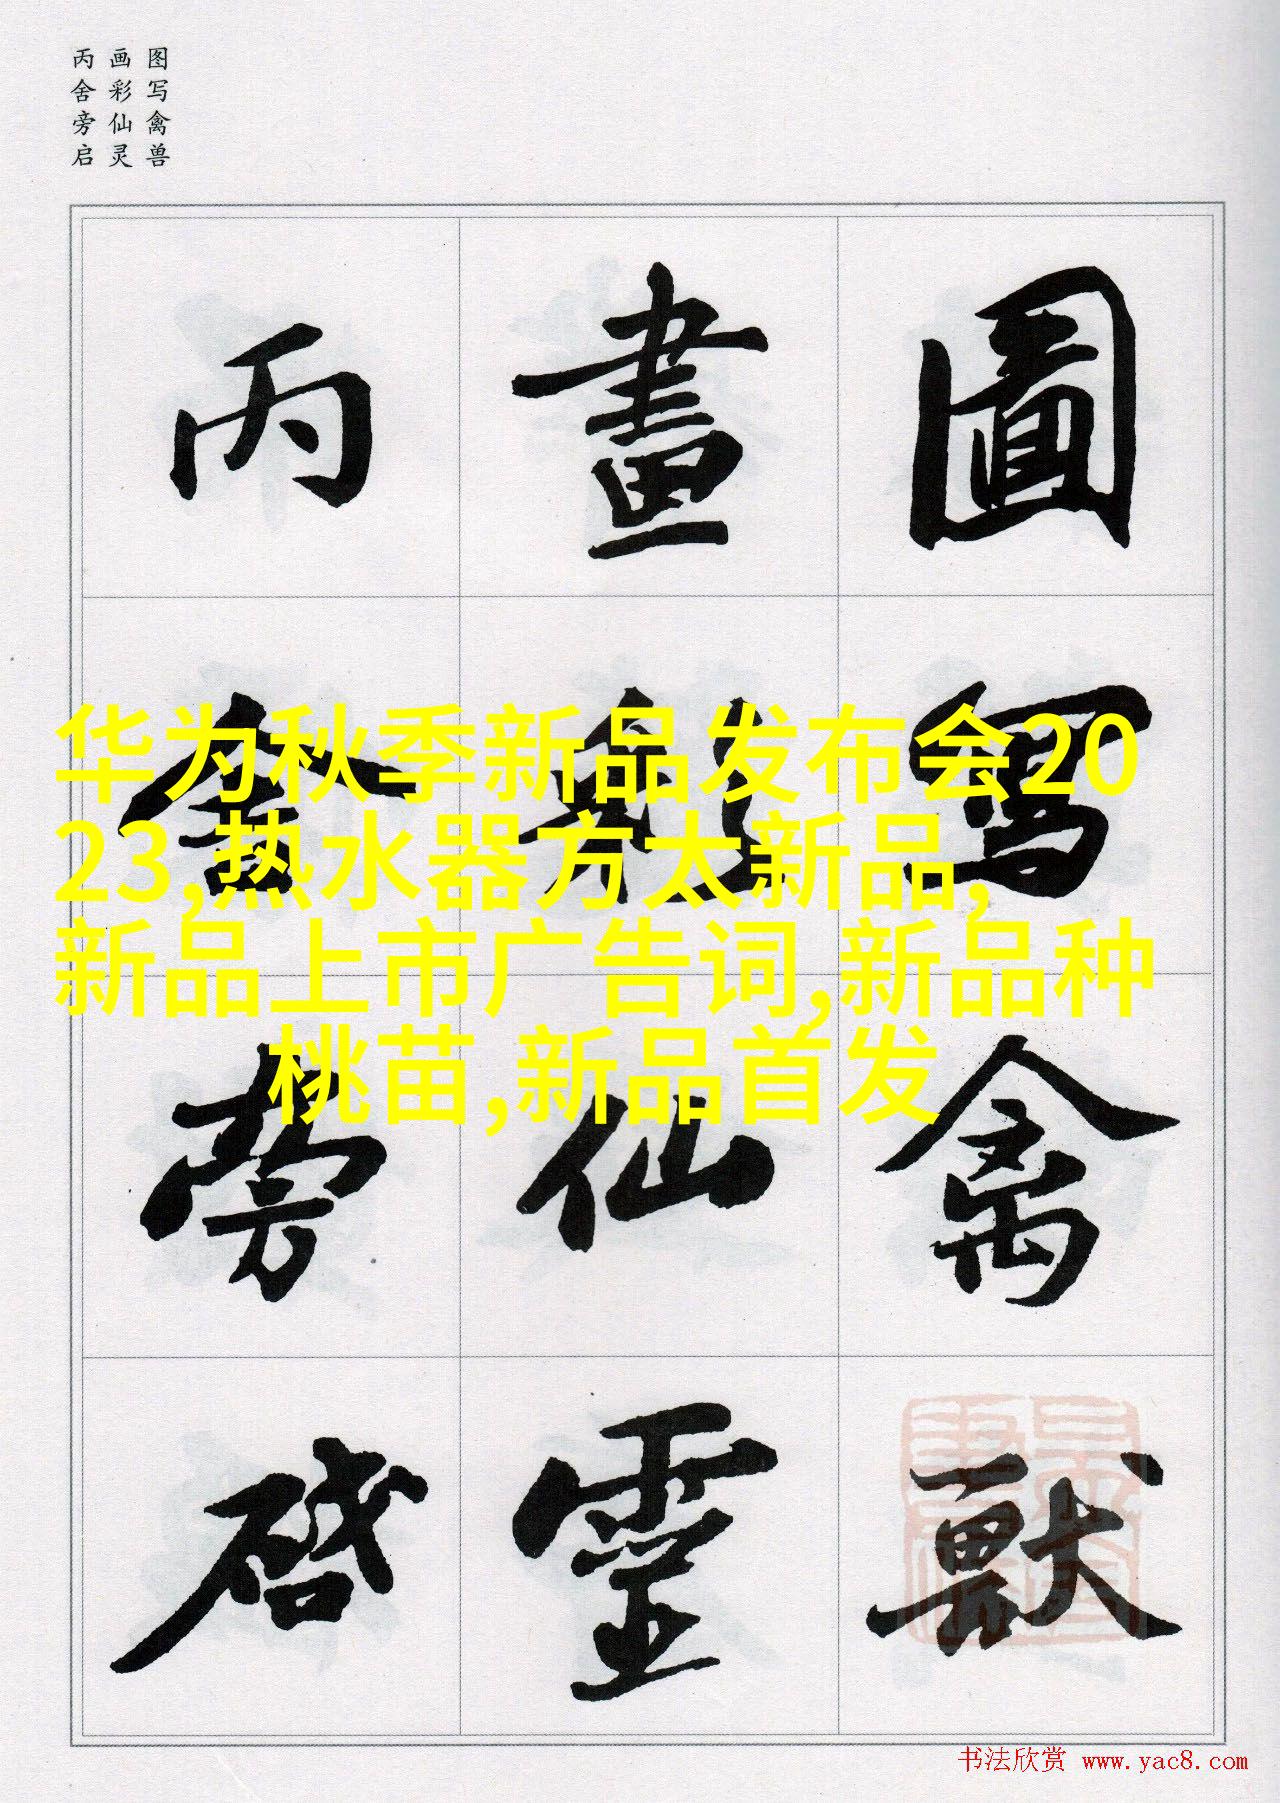 图写禽兽
画彩仙灵
丙舍旁启
圖寫禽獸
畫彩仙靈
丙舍旁啓
华为秋季新品发布会20
23,热水器方太新品,
新品上市广告词,新品种
桃苗,新品首发
书法欣赏 www.yac8.com